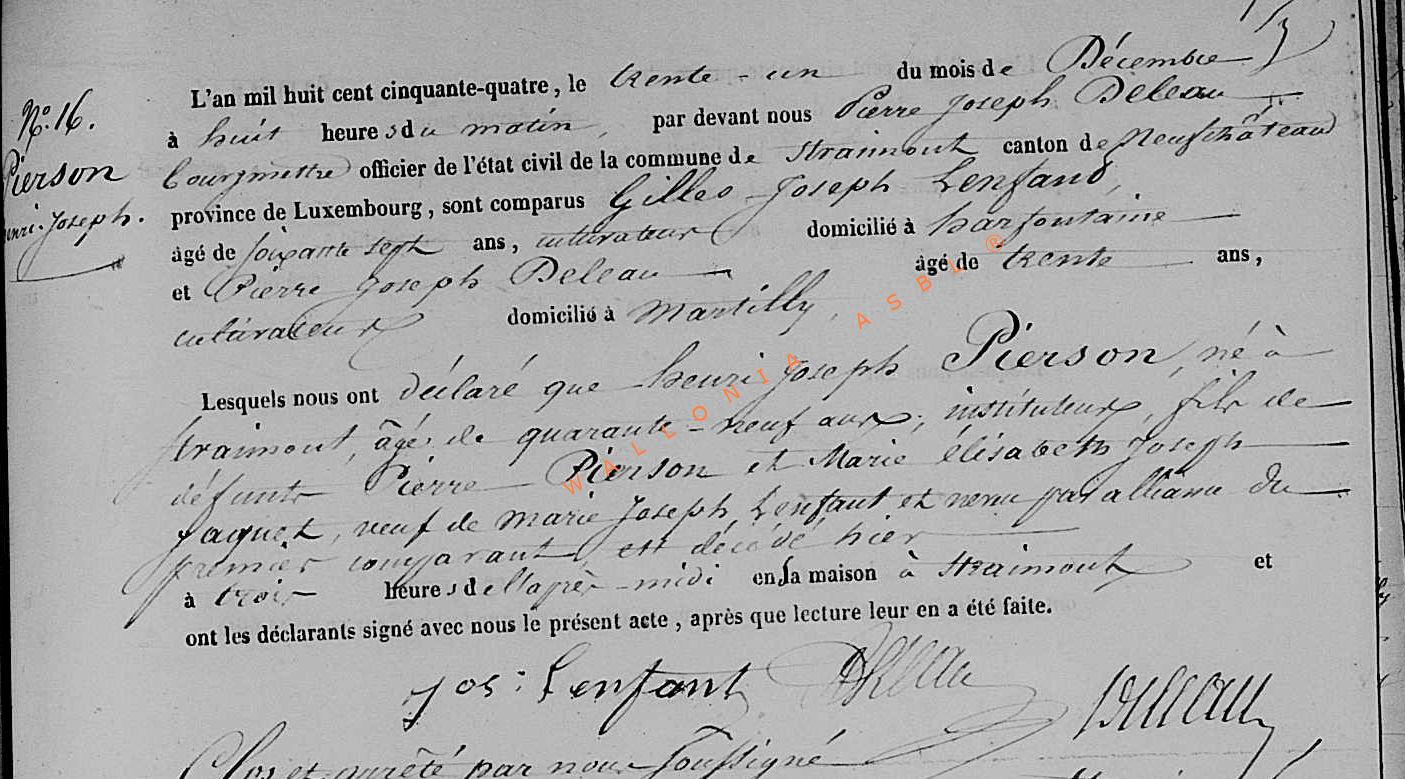 N°. 16.
Pierson
Henri-Joseph.
L'an mil huit cent cinquante-quatre, le trente-un du mois de Décembre
à huit heures du matin, par devant nous Pierre Joseph Deleau
bourgmettre officier de l'état civil de la commune de Straimont canton de Neufchâteau
province de Luxembourg, sont comparus Gilles-Joseph Lenfant,
âgé de soixante sept ans, cultivateur domicilié à harfontaine
et Pierre Joseph Deleau âgé de trente ans,
cultivateur domicilié à Martilly,
Lesquels nous ont déclaré que henri Joseph Pierson, né à
Straimont, âgé de quarante-neuf ans, instituteur, fils de
défunts Pierre Pierson et Marie élisabeth Joseph
Jaquet, veuf de Marie Joseph Lenfant et neveu par alliance du
premier comparant, est décédé hier
à trois heures de l'après-midi en sa maison à Straimont et
ont les déclarants signé avec nous le présent acte, après que lecture leur en a été faite.
Jos: Lenfant Deleau Deleau
Clos et arrêté par nous soussigné
WALLONIA ASBL ®